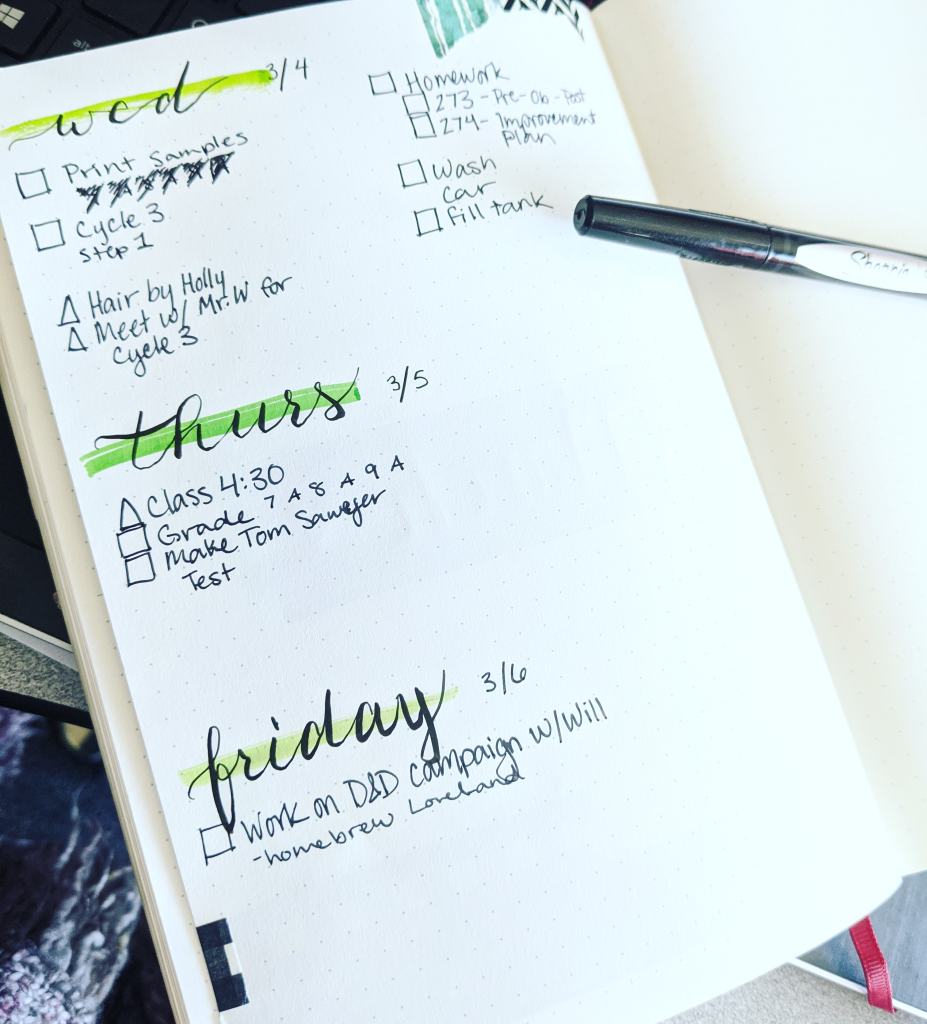 wed 3/4
Print Samples
Cycle 3
Step 1
Hair by Holly
Meet w/ Mr. W for
Cycle 3
Homework
273 - Pre-Ob-Post
274 - Improvement
Plan
Wash
car
fill tank
thurs 3/5
Class 4:30
Grade 7A 8A 9A
Make Tom Sawyer
Test
friday 3/6
Work on D&D campaign w/Will
-homebrew Loveland
alt
Sharpie